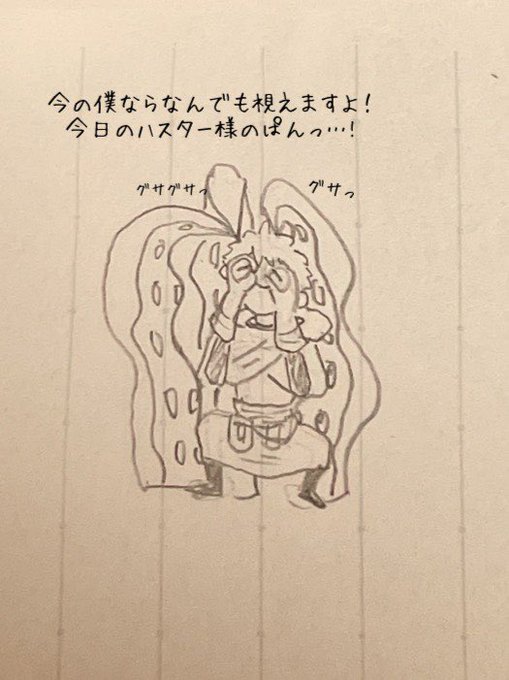 今の僕ならなんでも視えますよ!
今日のハスター様のぱんっ…!
グサグサっ
グサっ